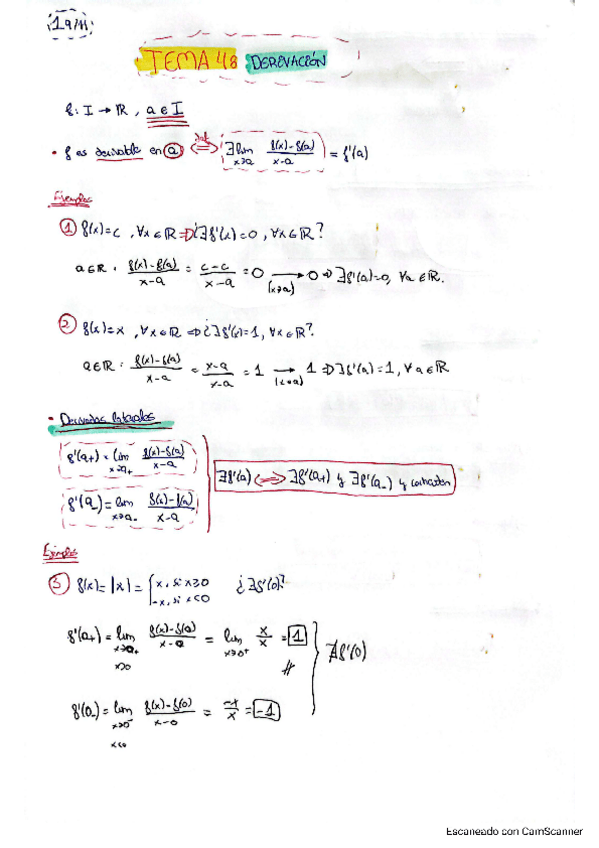 19/11
TEMA 4.8 DERIVACIÓN
f: I → ℝ, a ∈ I
• f es derivable en a ⟺(def) ∃ lim x→a (f(x)-f(a))/(x-a) = f'(a)
Ejemplos
① f(x)=c, ∀x∈ℝ ⇒ ¿∃f'(x)=0, ∀x∈ℝ?
a∈ℝ. (f(x)-f(a))/(x-a) = (c-c)/(x-a) = 0 → (x→a) 0 ⇒ ∃f'(a)=0, ∀a∈ℝ.
② f(x)=x, ∀x∈ℝ ⇒ ¿∃f'(x)=1, ∀x∈ℝ?
a∈ℝ. (f(x)-f(a))/(x-a) = (x-a)/(x-a) = 1 → (x→a) 1 ⇒ ∃f'(a)=1, ∀a∈ℝ
• Derivadas laterales
f'(a+) = lim x→a+ (f(x)-f(a))/(x-a)
∃f'(a) ⟺ ∃f'(a+) y ∃f'(a-) y coinciden
f'(a-) = lim x→a- (f(x)-f(a))/(x-a)
Ejemplos
③ f(x)=|x|= { x, si x≥0 ¿∃f'(0)?
-x, si x<0
f'(a+) = lim x→a+ (f(x)-f(a))/(x-a) = lim x→0+ x/x = 1
x>0
∄f'(0)
f'(a-) = lim x→0- (f(x)-f(0))/(x-0) = -x/x = -1
x<0
Escaneado con CamScanner